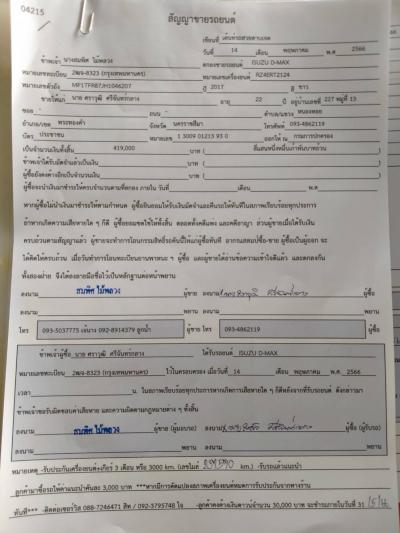 04215
สัญญาขายรถยนต์
เขียนที่
วันที่ 14 เดือน พฤษภาคม พ.ศ. 2566
ข้าพเจ้า นางสมพิศ ไม้พลวง ตกลงขายรถยนต์ ISUZU D-MAX
หมายเลขทะเบียน 2ฒจ-8323 (กรุงเทพมหานคร) หมายเลขเครื่องยนต์ RZ4ERT2124
หมายเลขตัวถัง MP1TFR87JH1046207 ปี 2017 สี ขาว
ขายให้แก่ นาย ศราวุฒิ ศรีจันทร์กลาง อายุ 22 ปี อยู่บ้านเลขที่ 227 หมู่ที่ 13
ซอย ถนน ตำบล/แขวง หนองหอย
อำเภอ/เขต พระทองคำ จังหวัด นครราชสีมา โทรศัพท์ 093-4862119
บัตร ประชาชน หมายเลข 1 3009 01213 93 0 ออกให้ ณ กรมการปกครอง
เป็นจำนวนเงินทั้งสิ้น 419,000 บาท ( สี่แสนหนึ่งหมื่นเก้าพันบาทถ้วน )
ข้าพเจ้าได้รับมัดจำแล้วเป็นเงิน บาท ( )
ผู้ซื้อยังคงค้างอีกเป็นจำนวนเงิน บาท ( )
ผู้ซื้อจะนำเงินมาชำระให้ครบจำนวนตามที่ตกลง ภายใน วันที่ เดือน พ.ศ
หากผู้ซื้อไม่นำเงินมาชำระให้ตามกำหนด ผู้ซื้อยินยอมให้ริบเงินมัดจำและคืนรถให้ทันทีในสภาพเรียบร้อยทุกประการ
ถ้าหากเกิดความเสียหายใด ๆ ก็ดี ผู้ซื้อยอมชดใช้ให้ทั้งสิ้น ตลอดทั้งคดีแพ่ง และคดีอาญา ส่วนผู้ขายเมื่อได้รับเงิน
ครบถ้วนตามสัญญาแล้ว ผู้ขายจะทำการโอนกรรมสิทธิ์รถคันนี้ให้แก่ผู้ซื้อทันที จากกรมสรรพ์ซื้อ-ขาย ผู้ซื้อเป็นผู้ออก จะ
ได้คิดให้ครบถ้วน เมื่อวันทำการโอนทะเบียนยานพาหนะ ฯ ผู้ซื้อ และผู้ขายได้อ่านข้อความเข้าใจดีแล้ว และตกลงกัน
ทั้งสองฝ่าย จึงได้ลงลายมือชื่อไว้เป็นหลักฐานต่อหน้าพยาน
ลงนาม สมพิศ ไม้พลวง ผู้ขาย ลงนาม ผู้ซื้อ
ลงนาม พยาน ลงนาม พยาน
โทร 093-5037775 เจ้นาง 092-8914379 ลูกน้ำ ผู้ขาย โทร 093-4862119 ผู้ซื้อ
ข้าพเจ้าผู้ซื้อ นาย ศราวุฒิ ศรีจันทร์กลาง ได้รับรถยนต์ ISUZU D-MAX
หมายเลขทะเบียน 2ฒจ-8323 (กรุงเทพมหานคร) ไว้ในครอบครอง เมื่อวันที่ 14 เดือน พฤษภาคม พ.ศ. 2566
เวลา น. ในสภาพเรียบร้อยทุกประการหากเกิดการเสียหายใด ๆ ก็ดีหลังจากที่รับรถยนต์ ดังกล่าวมา
ข้าพเจ้าขอรับผิดชอบค่าเสียหาย และความผิดตามกฎหมายต่าง ๆ ทั้งสิ้น
ลงนาม สมพิศ ไม้พลวง ผู้ขาย (ผู้มอบรถ) ลงนาม ผู้ซื้อ (ผู้รับรถ)
ลงนาม พยาน ลงนาม พยาน
หมายเหตุ -รับประกันเครื่องยนต์+เกียร์ 3 เดือน หรือ 3000 km. (เลขไมล์ km.) -รับรถแล้วแนะนำ
ลูกค้ามาซื้อรถให้ค่าแนะนำคันละ 3,000 บาท ***หากมีการดัดแปลงสภาพเครื่องยนต์หมดการรับประกันจากทางร้าน
ทันที*** -ติดต่อเซอร์วิส 088-7246471 สิท / 092-3795748 ใจ -ลูกค้าคงค้างเงินดาวน์จำนวน 30,000 บาท จะชำระภายในวันที่ 31